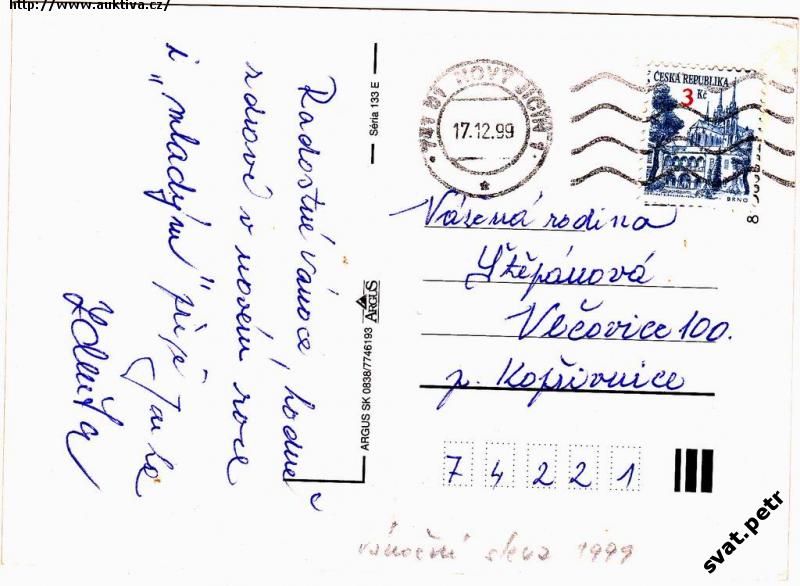 http://www.auktiva.cz/
Radostné vánoce, hodně
zdraví v novém roce
i „mladým” přeje Jarka
Zdeňka
Séria 133 E
ARGUS
ARGUS SK 0838/7746193
741 01 NOVÝ JIČÍN 1
17.12.99
ČESKÁ REPUBLIKA
3 Kč
BRNO
Vážená rodina
Štěpánová
Vlčovice 100.
p. Kopřivnice
74221
vánoční 1999
svat.petr